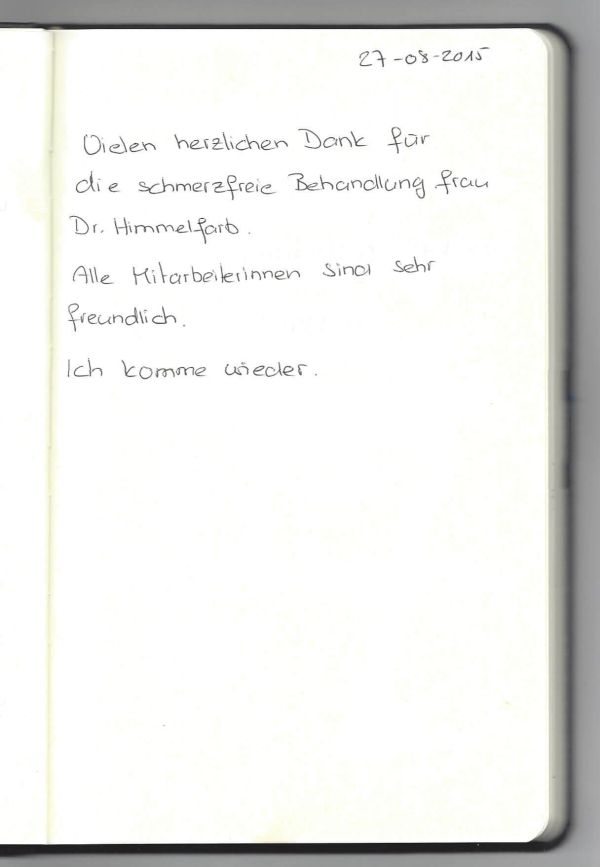 27-08-2015
Vielen herzlichen Dank für
die schmerzfreie Behandlung frau
Dr. Himmelfarb.
Alle Mitarbeiterinnen sind sehr
freundlich.
Ich komme wieder.